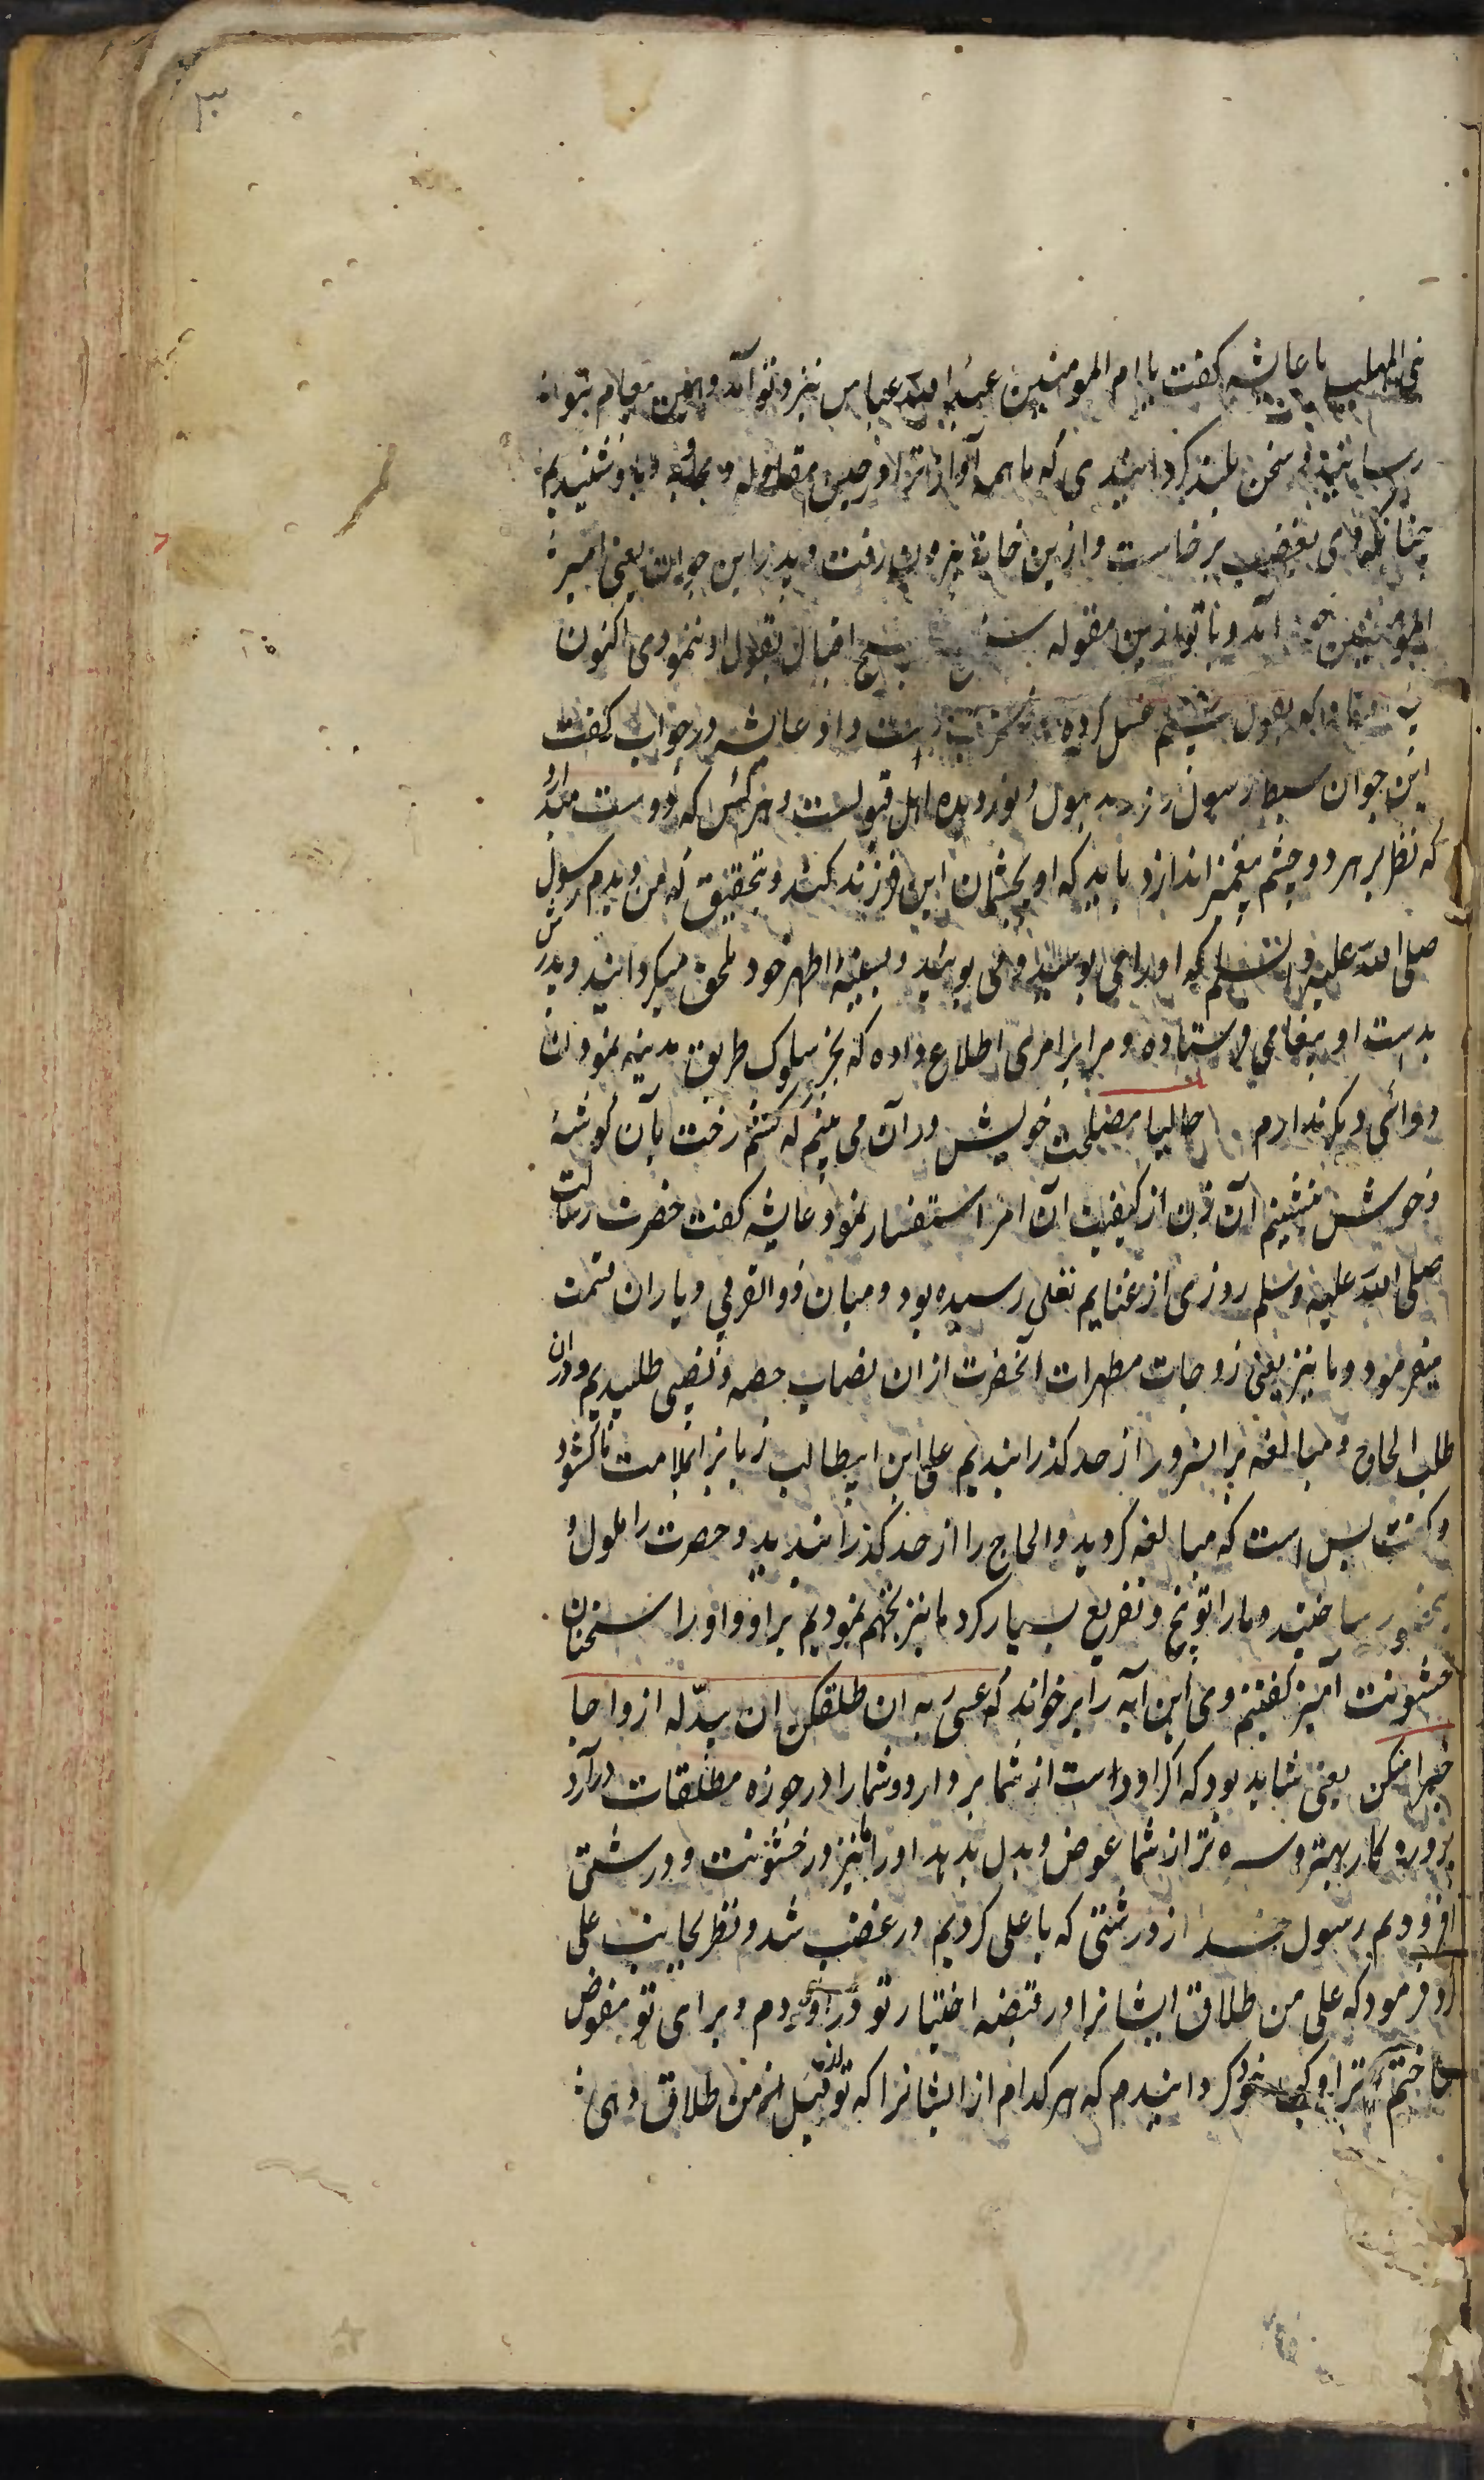 ۳
بنی المهلب با عایشه کفت یا ام المومنین عبد الله عباس نیز و تو آمد و همین پیغام بتو
رسانید سخن بلند کردانیدی که ما همه آواز ترا در حین مقاوله و مجاوبه با او شنیدیم
چنانکه وی بغضب برخاست و ازین خانه بیرون رفت و پدر این جوان یعنی امیر
المومنین آمد و با تو ازین مقوله سخن هیچ اقبال بقول او ننمودی اکنون
که بقول داد عایشه در جواب کفت
این جوان سبط رسول فرزند بتول و نور دیده اهل قبولست و هر کس که دوست میدارد
که نظر بر هر دو چشم پیغمبر اندازد باید که او بچشمان این فرزند کند و بتحقیق که من دیدم رسول
صلی الله علیه و سلم که او را می بوسید و می بویید و بسینهٔ اطهر خود ملحق میکردانید و پدرش
بدست او پیغامی فرستاده و مرا بر امری اطلاع داده که بجز سلوک طریق مدینه نمودن
دوائی دیکر ندارم حالیا مصلحت خویش در آن می بینم که کشم رخت بآن کوشهٔ
و خوش بنشینم آن زن از کیفیت آن امر استفسار نمود عایشه کفت حضرت رسالت
صلی الله علیه و سلم روزی از غنایم نفلی رسیده بود و میان ذوالقربی و یاران قسمت
میفرمود و ما نیز یعنی زوجات مطهرات آنحضرت از ان نصاب حصه و نصیبی طلبیدیم و در ان
طلب الحاح و مبالغه برانسرور از حد کذرانیدیم علی ابن ابیطالب زبانرا بملامت ما کشود
و کفت بس است که مبالغه کردید و الحاح را از حد کذرانیدید و حضرت را ملول و
رنجور ساختید و ما را توبیخ و تقریع بسیار کرد ما نیز تجهم نمودیم بر او و او را سخنان
خشونت آمیز کفتیم وی این آیه را برخواند که عسی ربه ان طلقکن ان یبدله ازواجا
خیرا منکن یعنی شاید بود که اکر او دست از شما بردارد و شما را در حوزه مطلقات درآرد
پروردکار بهتر و سره تر از شما عوض و بدل بدهد او را ما نیز در خشونت و درشتی
افزودیم رسول خدا از درشتی که با علی کردیم در غضب شد و نظر بجانب علی
کرد فرمود که علی من طلاق ایشانرا در قبضه اختیار تو در آوردم و برای تو مفوض
ساختم و ترا وکیل خود کردانیدم که هر کدام از ایشانرا که تو از قبل من طلاق دهی